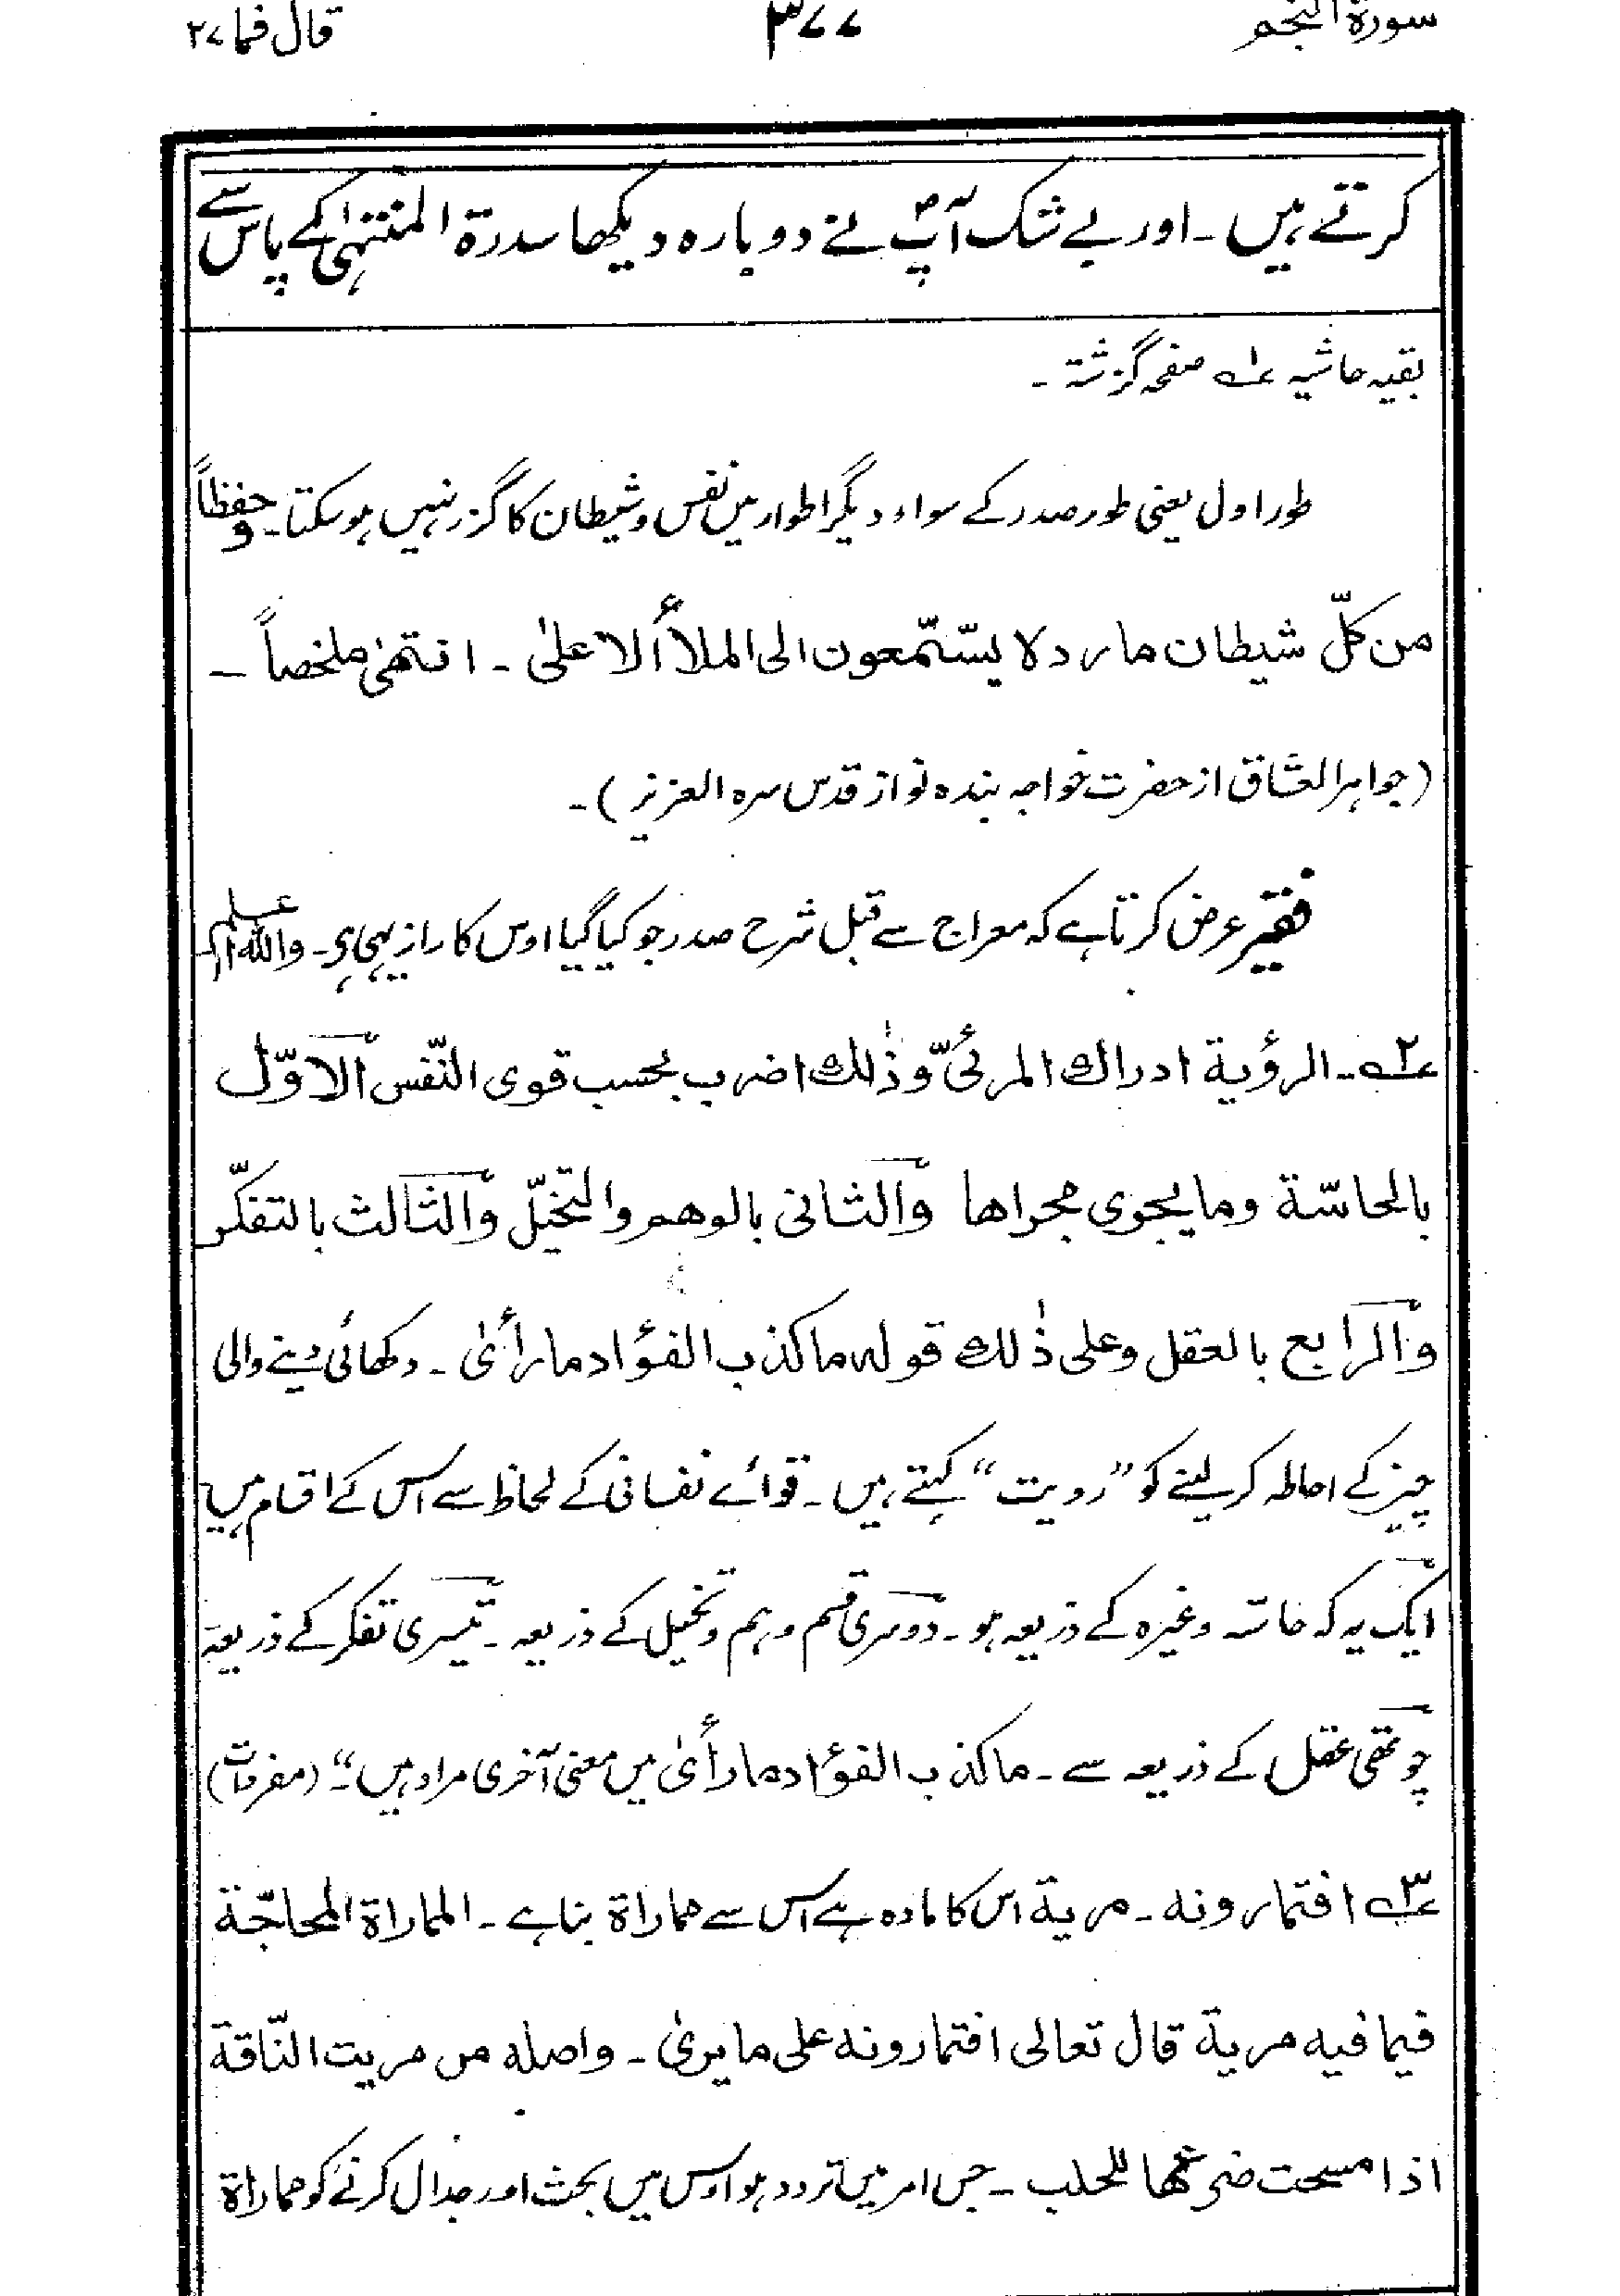 سورة النجم ۳۷۷ قال فما ۲۷
کرتے ہیں۔ اور بے شک آپؐ نے دوبارہ دیکھا سدرة المنتہیٰ کے پاس سے
بقیہ حاشیہ ۱؎ صفحہ گزشتہ۔
طور اول یعنی طور صدر کے سواء دیگر اطوار میں نفس و شیطان کا گزر نہیں ہو سکتا۔ وحفظاً
من کلّ شیطان مارد لا یسّمّعون الی الملأ الاعلیٰ۔ انتھیٰ ملخصاً۔
(جواہر العشاق از حضرت خواجہ بندہ نواز قدس سرہ العزیز)۔
فقیر عرض کرتا ہے کہ معراج سے قبل شرح صدر جو کیا گیا اوس کا راز یہی ہے۔ واللہ اعلم
۲؎۔ الرؤیة ادراك المرئیّ وذٰلك اضرب بحسب قوی النّفس الاوّل
بالحاسّة وما یجری مجراها والثانی بالوهم والتخیّل والثالث بالتفکّر
والرابع بالعقل وعلی ذٰلك قوله ما کذب الفؤاد ما رأیٰ۔ دکھائی دینے والی
چیز کے احاطہ کر لینے کو ”رویت“ کہتے ہیں۔ قوائے نفسانی کے لحاظ سے اس کے اقسام ہیں
ایک یہ کہ حاسّہ وغیرہ کے ذریعہ ہو۔ دوسری قسم وہم و تخیل کے ذریعہ۔ تیسری تفکر کے ذریعہ
چوتھی عقل کے ذریعہ سے۔ ما کذب الفؤاد ما رأیٰ میں معنی آخری مراد ہیں۔“ (مفردات)
۳؎ افتمارونه۔ مریة اس کا مادہ ہے اس سے مماراة بنا ہے۔ المماراة المحاجّة
فیما فیه مریة قال تعالی افتمارونه علی ما یریٰ۔ واصله من مریت النّاقة
اذا مسحت ضرعها للحلب۔ جس امر میں تردد ہو اوس میں بحث اور جدال کرنے کو مماراة